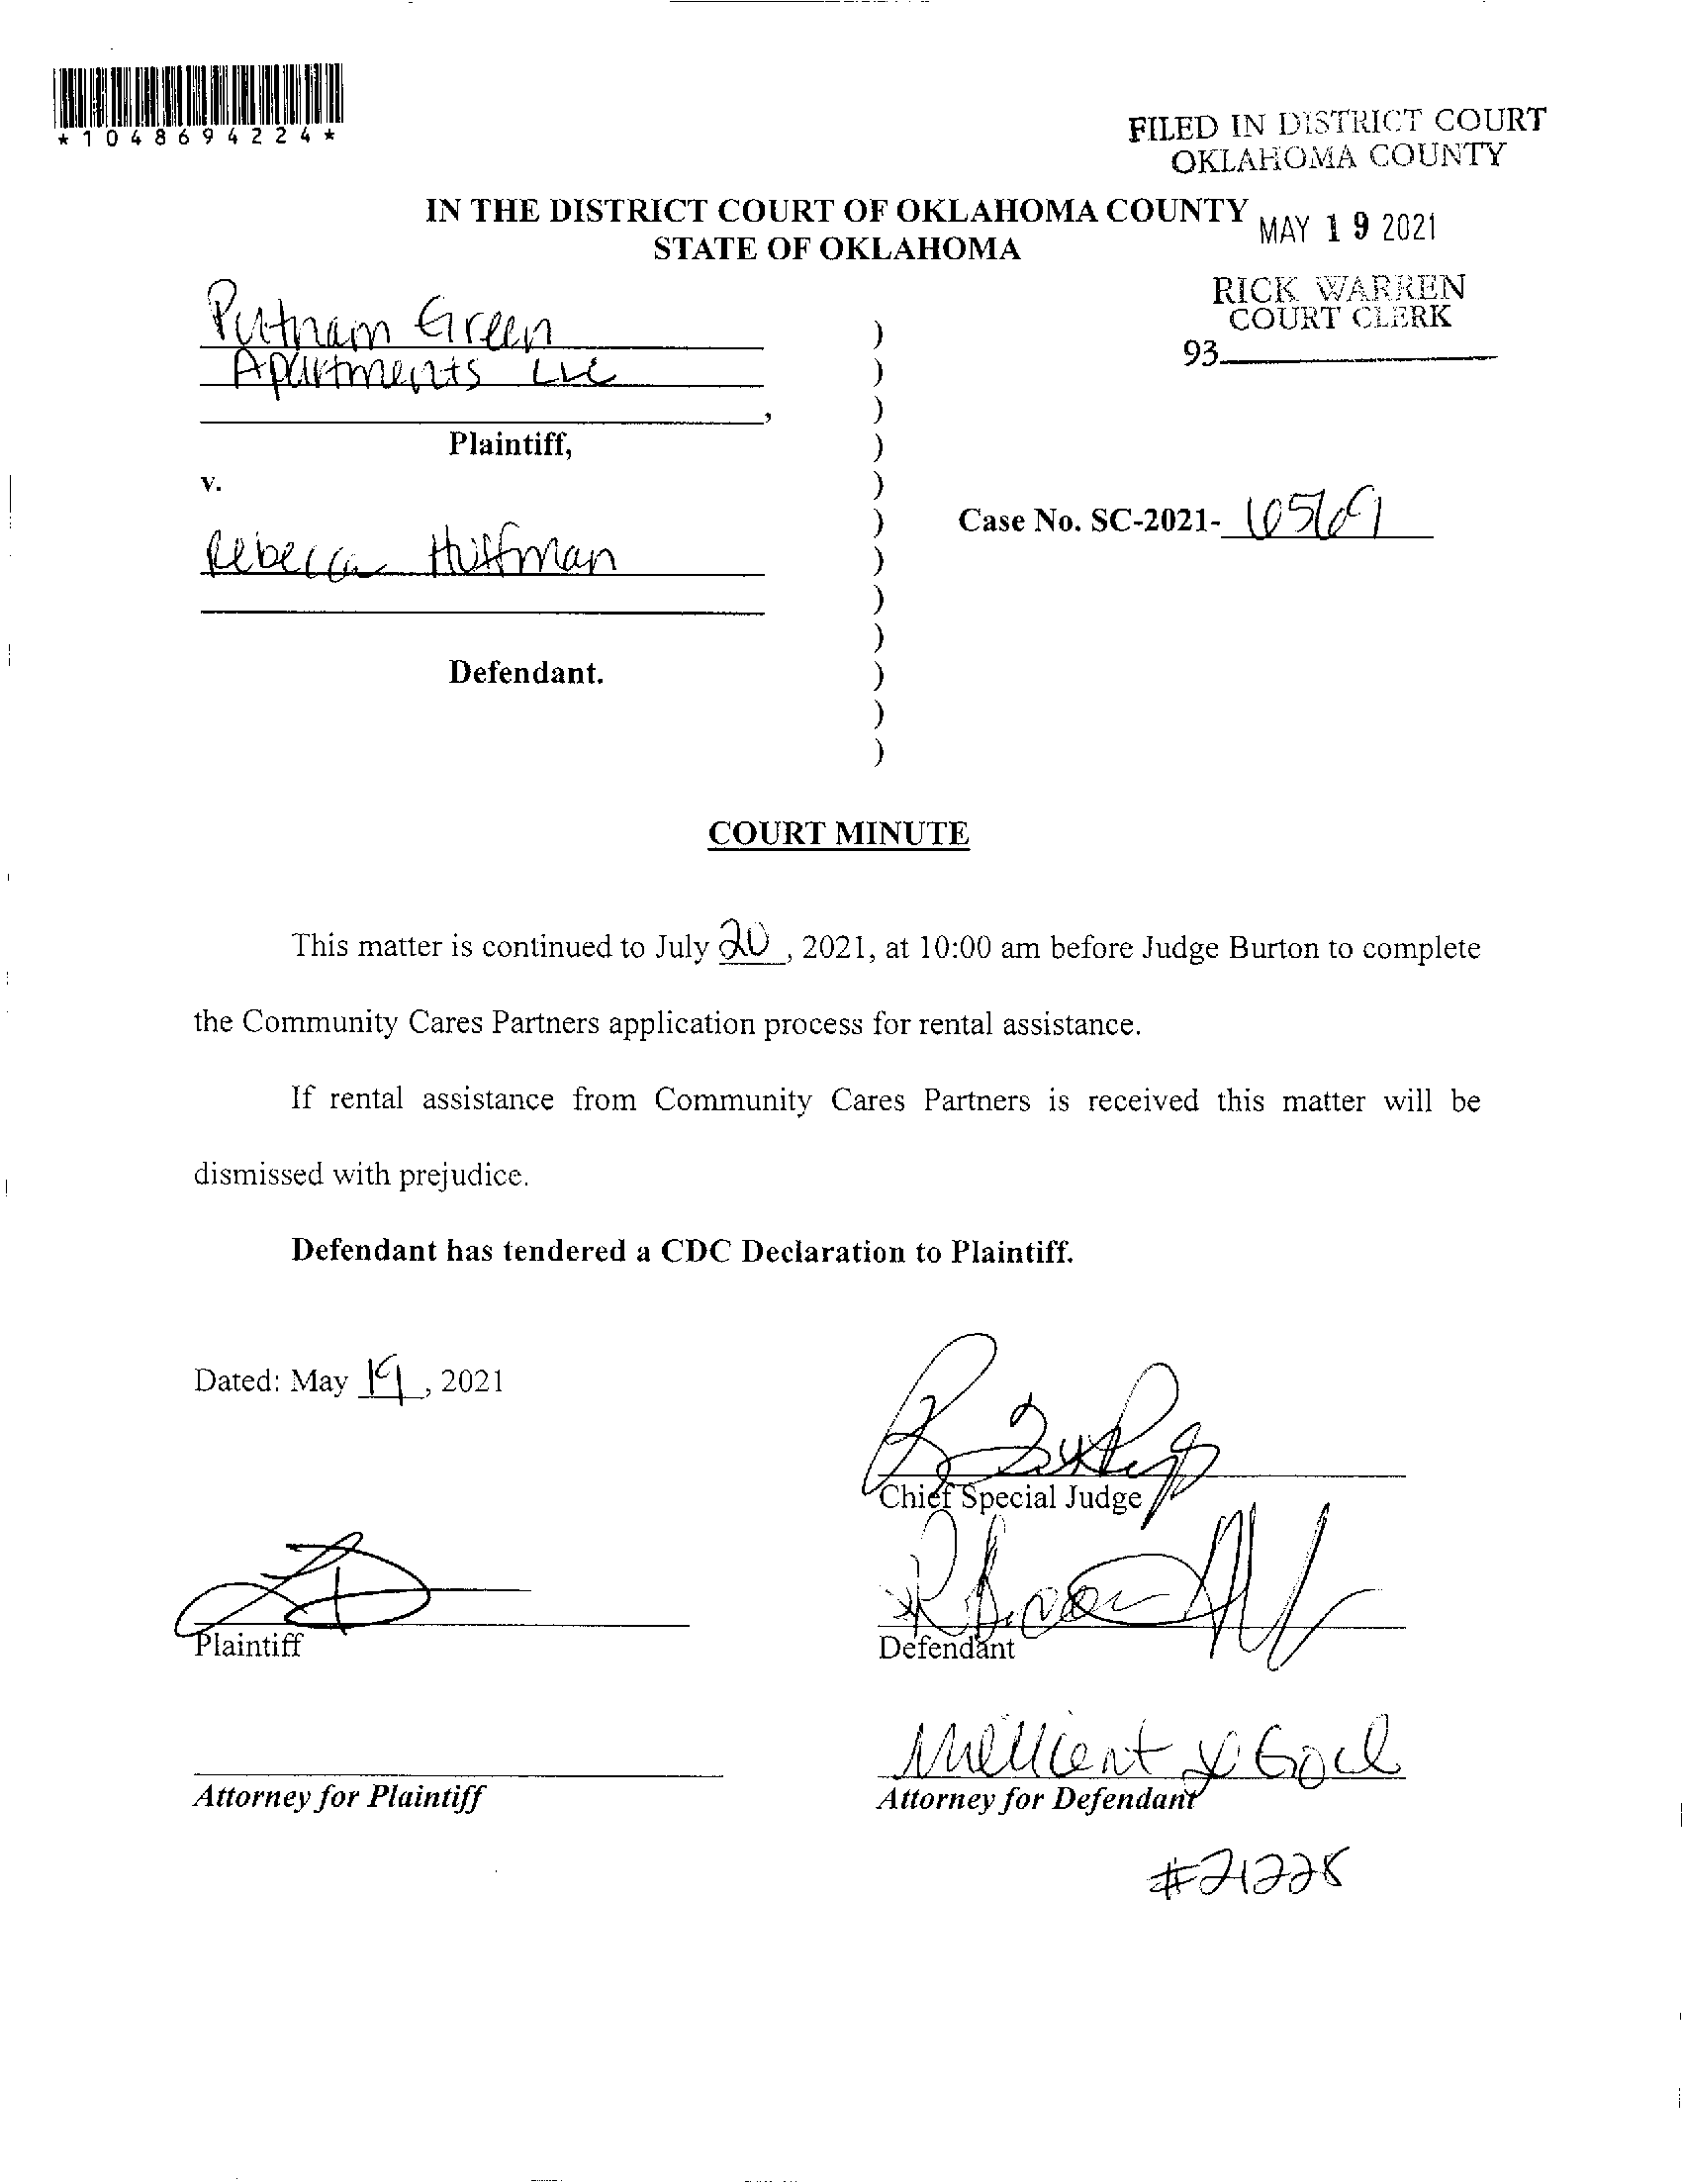 *1048694224*
FILED IN DISTRICT COURT
OKLAHOMA COUNTY
IN THE DISTRICT COURT OF OKLAHOMA COUNTY
STATE OF OKLAHOMA
MAY 19 2021
RICK WARREN
COURT CLERK
93
Putnam Green
Apartments LLC
,
Plaintiff,
v.
Case No. SC-2021-
Rebecca Huffman
Defendant.
COURT MINUTE
This matter is continued to July 20, 2021, at 10:00 am before Judge Burton to complete
the Community Cares Partners application process for rental assistance.
If rental assistance from Community Cares Partners is received this matter will be
dismissed with prejudice.
Defendant has tendered a CDC Declaration to Plaintiff.
Dated: May 19, 2021
Chief Special Judge
Plaintiff
Defendant
Attorney for Plaintiff
Attorney for Defendant
#21228